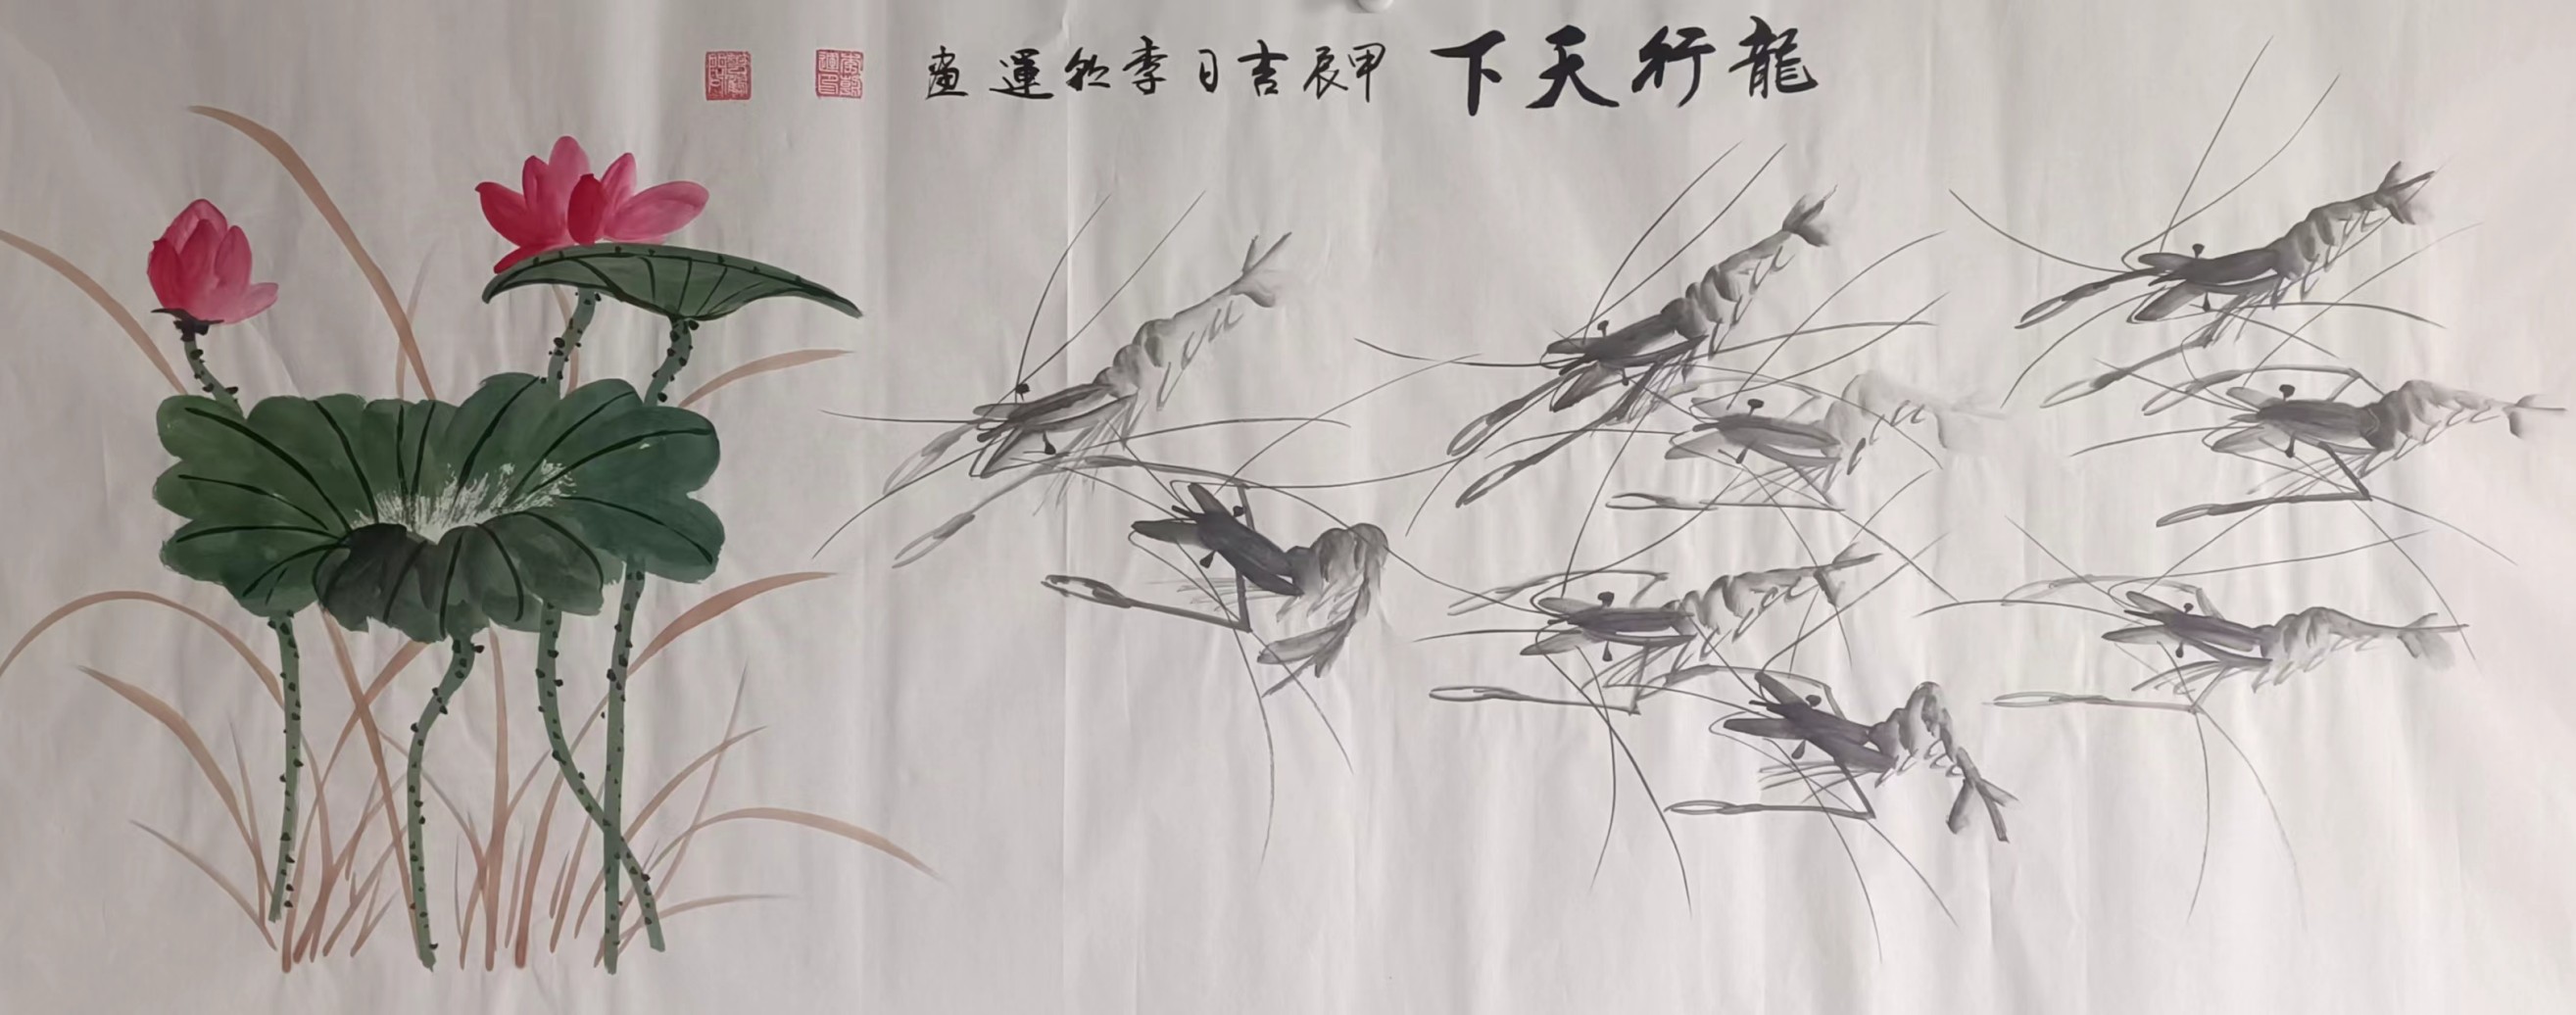 龍行天下
甲辰吉日李乾運畫